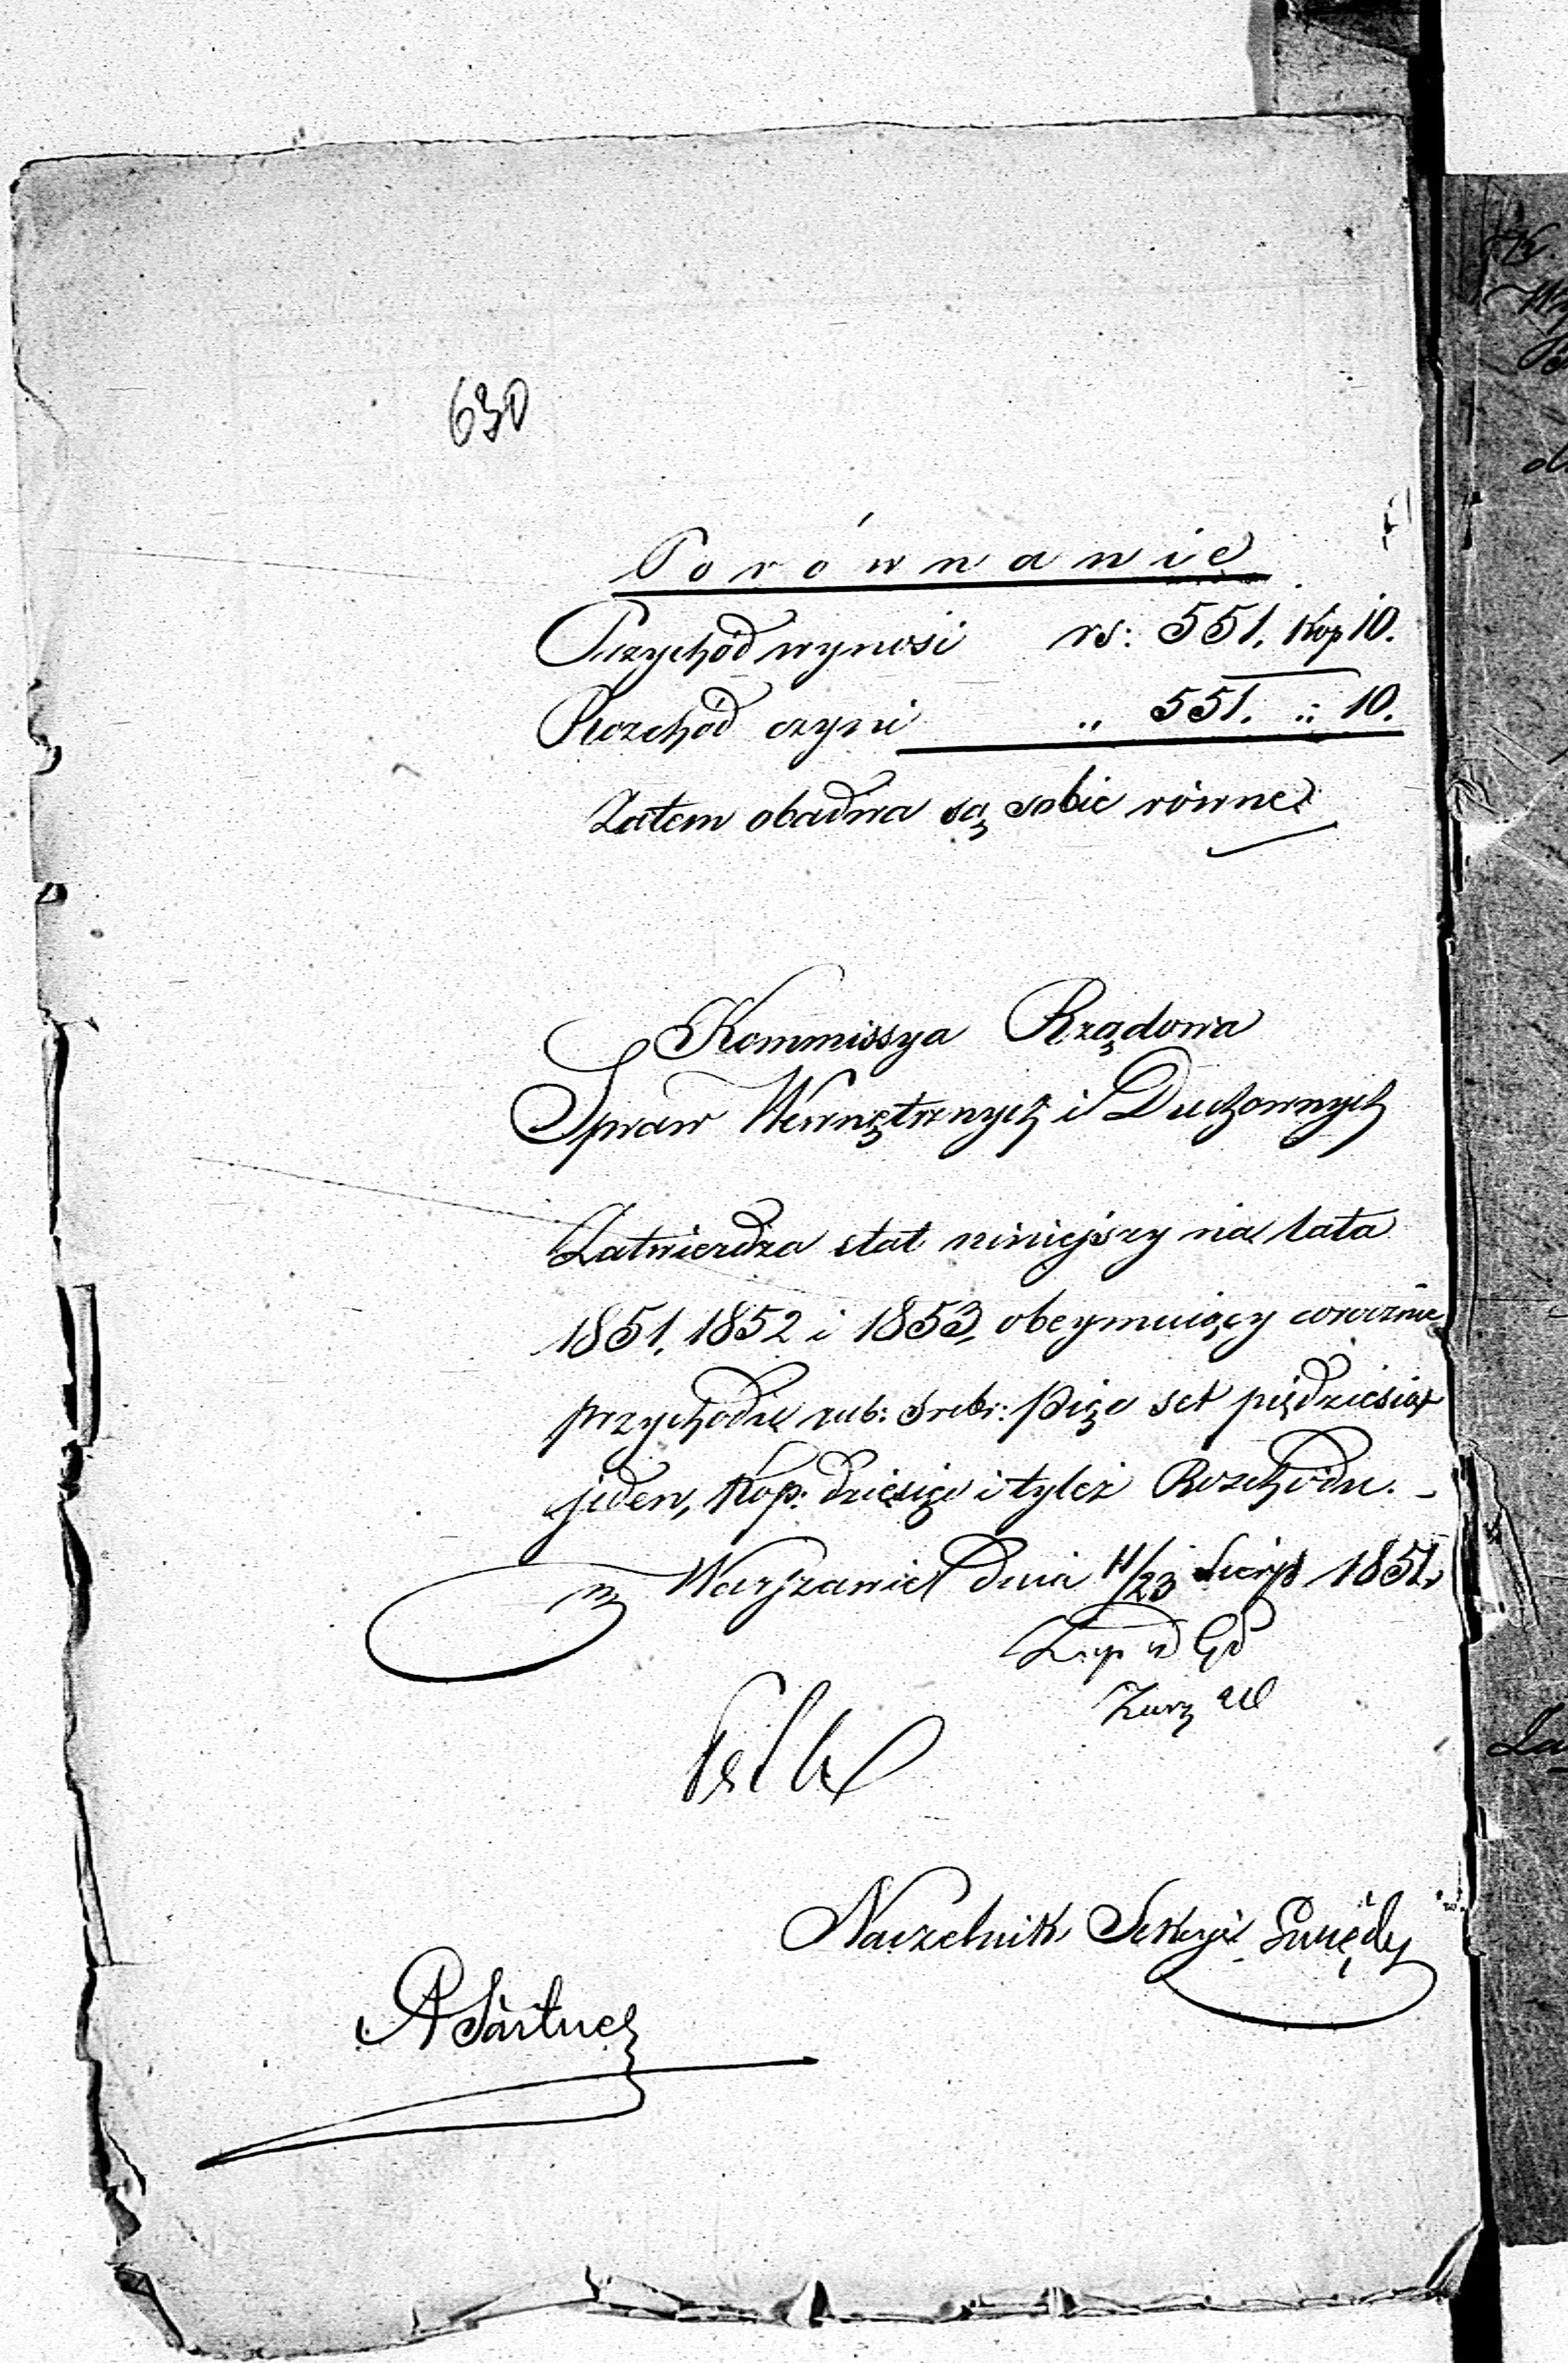 630
Porównanie
Przychód wynosi rs: 551. Kop 10.
Rozchód czyni „ 551. „ 10.
Zatem obadwa są sobie równe.
Kommissya Rządowa
Spraw Wewnętrznych i Duchownych
Zatwierdza etat niniejszy na lata
1851, 1852 i 1853, obeymuiący corocznie
przychodu rub: srebr: pięć set piędziesiąt
jeden, Kop: dziesięć i tyleż Rozchodu. -
w Warszawie dnia 11/23 Sierp 1851.
Naczelnik Sekcyi